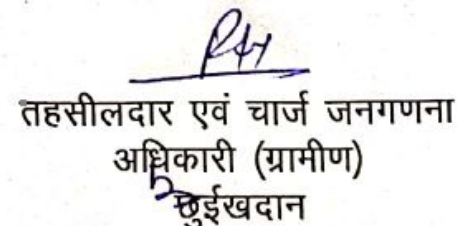 तहसीलदार एवं चार्ज जनगणना
अधिकारी (ग्रामीण)
छुईखदान